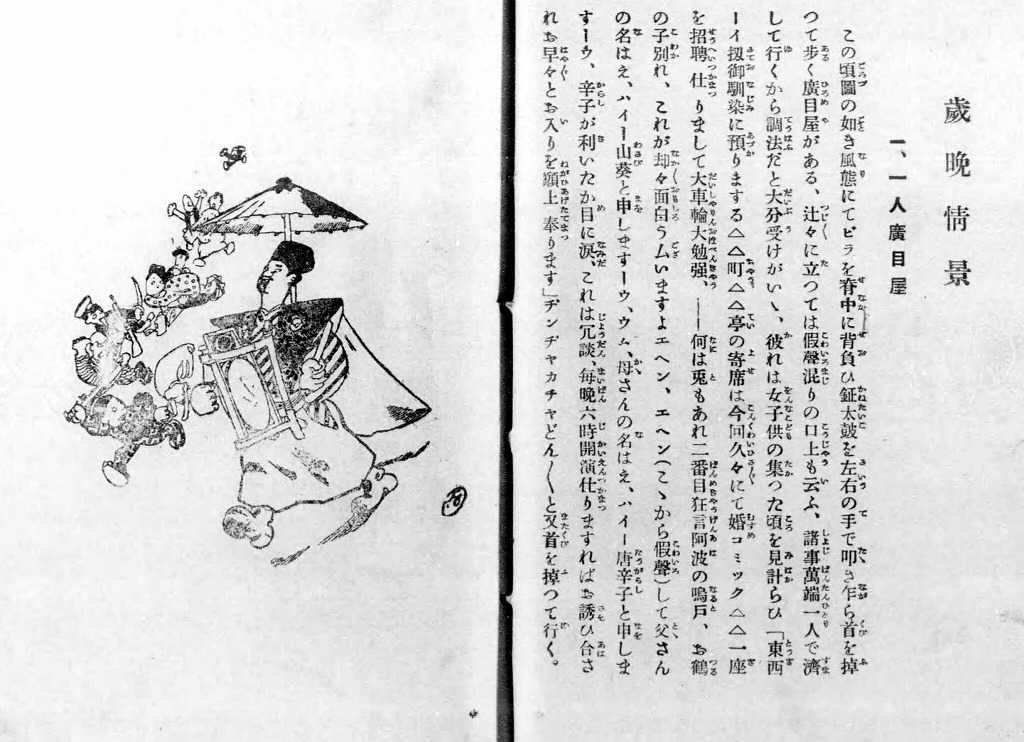 歲晩情景
一、一人廣目屋
この頃圖の如き風態にてビラを脊中に背負ひ鉦太鼓を左右の手で叩き乍ら首を掉
つて歩く廣目屋がある、辻々に立つては假聲混りの口上も云ふ、諸事萬端一人で濟
して行くから調法だと大分受けがいゝ、彼れは女子供の集つた頃を見計らひ「東西
ーイ扨御馴染に預りまする△△町△△亭の寄席は今回久々にて娘コミック△△一座
を招聘仕りまして大車輪大勉强、――何は兎もあれ二番目狂言阿波の鳴戶、お鶴
の子別れ、これが却々面白う厶いますよエヘン、エヘン(こゝから假聲)して父さん
の名はえ、ハイー山葵と申しますーウ、ウム、母さんの名はえ、ハイー唐辛子と申しま
すーウ、辛子が利いたか目に淚、これは冗談、每晩六時開演仕りますればお誘ひ合さ
れお早々とお入りを願上奉ります」ヂンヂャカチャどん〱と又首を掉つて行く。